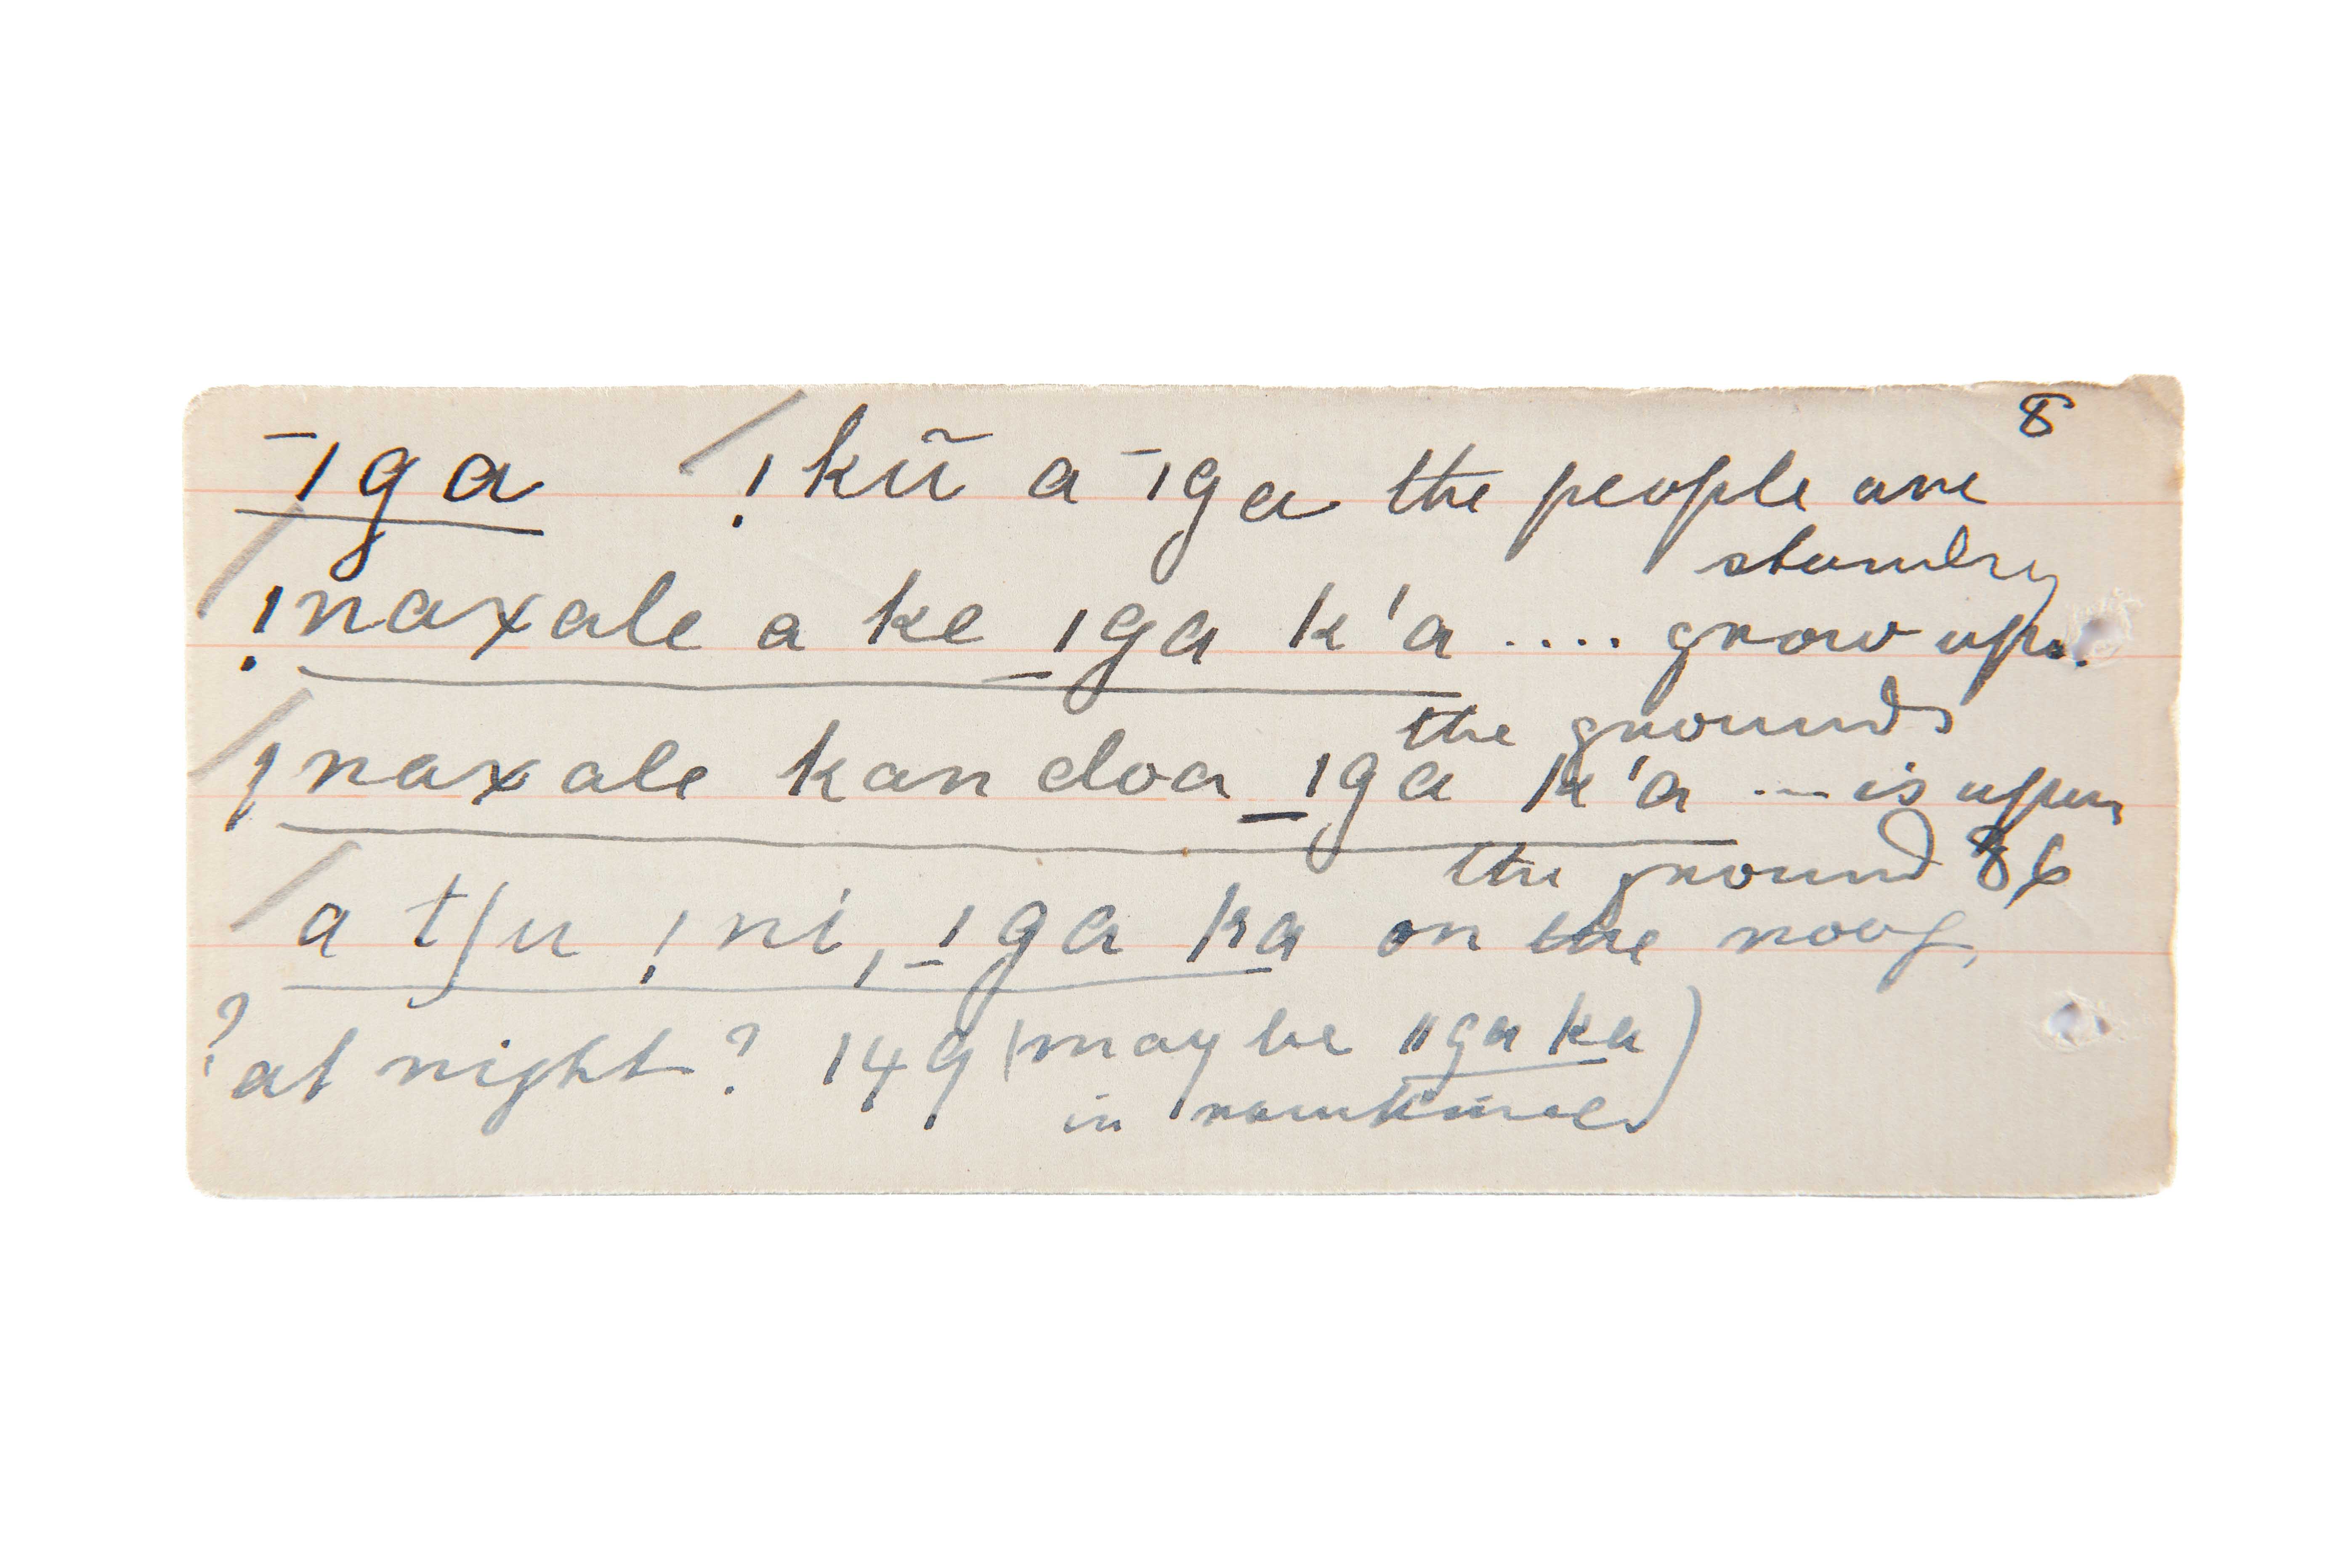 8
¯ǀga ǃkũ a ¯ǀga the people are
standing
ǃnaxale a ke _ǀga k'a .... grow up.
the grounds
ǃnaxale kan doa _ǀga k'a ... is upon
the ground 86
a tʃu ǃni, _ǀga ka on the roof,
? at night? 149 (may be ǁga ka)
in